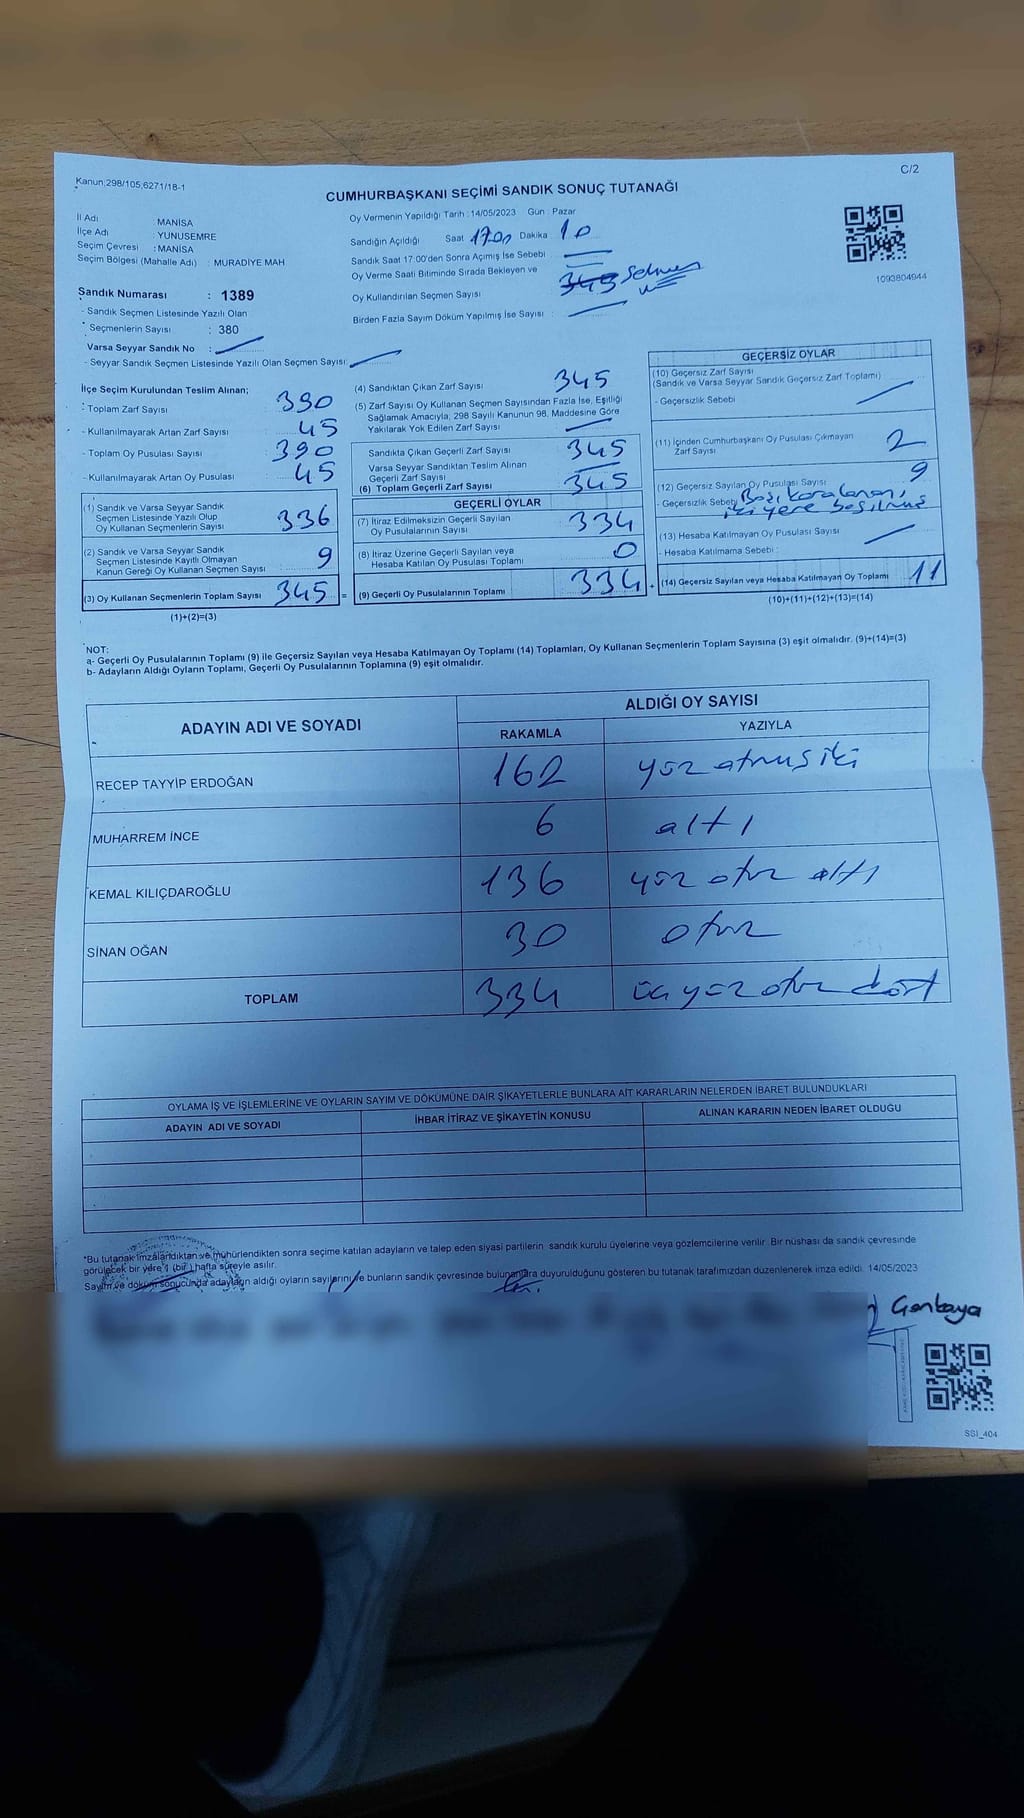 Kanun;298/105,6271/18-1
C/2
CUMHURBAŞKANI SEÇİMİ SANDIK SONUÇ TUTANAĞI
İl Adı MANİSA
İlçe Adı : YUNUSEMRE
Seçim Çevresi : MANİSA
Seçim Bölgesi (Mahalle Adı) : MURADİYE MAH
Oy Vermenin Yapıldığı Tarih : 14/05/2023 Gün : Pazar
Sandığın Açıldığı Saat 17.00 Dakika 10
Sandık Saat 17:00'den Sonra Açımış İse Sebebi
Oy Verme Saati Bitiminde Sırada Bekleyen ve
Oy Kullandırılan Seçmen Sayısı 345
Birden Fazla Sayım Döküm Yapılmış İse Sayısı :
1093804944
Sandık Numarası : 1389
- Sandık Seçmen Listesinde Yazılı Olan
Seçmenlerin Sayısı : 380
Varsa Seyyar Sandık No :
- Seyyar Sandık Seçmen Listesinde Yazılı Olan Seçmen Sayısı:
İlçe Seçim Kurulundan Teslim Alınan;
- Toplam Zarf Sayısı 390
- Kullanılmayarak Artan Zarf Sayısı 45
- Toplam Oy Pusulası Sayısı 390
- Kullanılmayarak Artan Oy Pusulası 45
(1) Sandık ve Varsa Seyyar Sandık
Seçmen Listesinde Yazılı Olup
Oy Kullanan Seçmenlerin Sayısı 336
(2) Sandık ve Varsa Seyyar Sandık
Seçmen Listesinde Kayıtlı Olmayan
Kanun Gereği Oy Kullanan Seçmen Sayısı 9
(3) Oy Kullanan Seçmenlerin Toplam Sayısı 345 =
(1)+(2)=(3)
(4) Sandıktan Çıkan Zarf Sayısı 345
(5) Zarf Sayısı Oy Kullanan Seçmen Sayısından Fazla İse, Eşitliği
Sağlamak Amacıyla, 298 Sayılı Kanunun 98. Maddesine Göre
Yakılarak Yok Edilen Zarf Sayısı
Sandıkta Çıkan Geçerli Zarf Sayısı 345
Varsa Seyyar Sandıktan Teslim Alınan
Geçerli Zarf Sayısı
(6) Toplam Geçerli Zarf Sayısı 345
GEÇERLİ OYLAR
(7) İtiraz Edilmeksizin Geçerli Sayılan
Oy Pusulalarının Sayısı 334
(8) İtiraz Üzerine Geçerli Sayılan veya
Hesaba Katılan Oy Pusulası Toplamı 0
(9) Geçerli Oy Pusulalarının Toplamı 334 +
GEÇERSİZ OYLAR
(10) Geçersiz Zarf Sayısı
(Sandık ve Varsa Seyyar Sandık Geçersiz Zarf Toplamı)
- Geçersizlik Sebebi
(11) İçinden Cumhurbaşkanı Oy Pusulası Çıkmayan
Zarf Sayısı 2
(12) Geçersiz Sayılan Oy Pusulası Sayısı 9
- Geçersizlik Sebebi Bazı karalanan,
iki yere basılmış
(13) Hesaba Katılmayan Oy Pusulası Sayısı
- Hesaba Katılmama Sebebi :
(14) Geçersiz Sayılan veya Hesaba Katılmayan Oy Toplamı 11
(10)+(11)+(12)+(13)=(14)
NOT:
a- Geçerli Oy Pusulalarının Toplamı (9) ile Geçersiz Sayılan veya Hesaba Katılmayan Oy Toplamı (14) Toplamları, Oy Kullanan Seçmenlerin Toplam Sayısına (3) eşit olmalıdır. (9)+(14)=(3)
b- Adayların Aldığı Oyların Toplamı, Geçerli Oy Pusulalarının Toplamına (9) eşit olmalıdır.
ADAYIN ADI VE SOYADI ALDIĞI OY SAYISI
RAKAMLA YAZIYLA
RECEP TAYYİP ERDOĞAN 162 yüz atmış iki
MUHARREM İNCE 6 altı
KEMAL KILIÇDAROĞLU 136 yüz otuz altı
SİNAN OĞAN 30 otuz
TOPLAM 334 üç yüz otuz dört
OYLAMA İŞ VE İŞLEMLERİNE VE OYLARIN SAYIM VE DÖKÜMÜNE DAİR ŞİKAYETLERLE BUNLARA AİT KARARLARIN NELERDEN İBARET BULUNDUKLARI
ADAYIN ADI VE SOYADI İHBAR İTİRAZ VE ŞİKAYETİN KONUSU ALINAN KARARIN NEDEN İBARET OLDUĞU
*Bu tutanak imzalandıktan ve mühürlendikten sonra seçime katılan adayların ve talep eden siyasi partilerin sandık kurulu üyelerine veya gözlemcilerine verilir. Bir nüshası da sandık çevresinde
görülecek bir yere 1 (bir) hafta süreyle asılır.
Sayım ve döküm sonucunda adayların aldığı oyların sayılarını ve bunların sandık çevresinde bulunanlara duyurulduğunu gösteren bu tutanak tarafımızdan düzenlenerek imza edildi. 14/05/2023
SSI_404